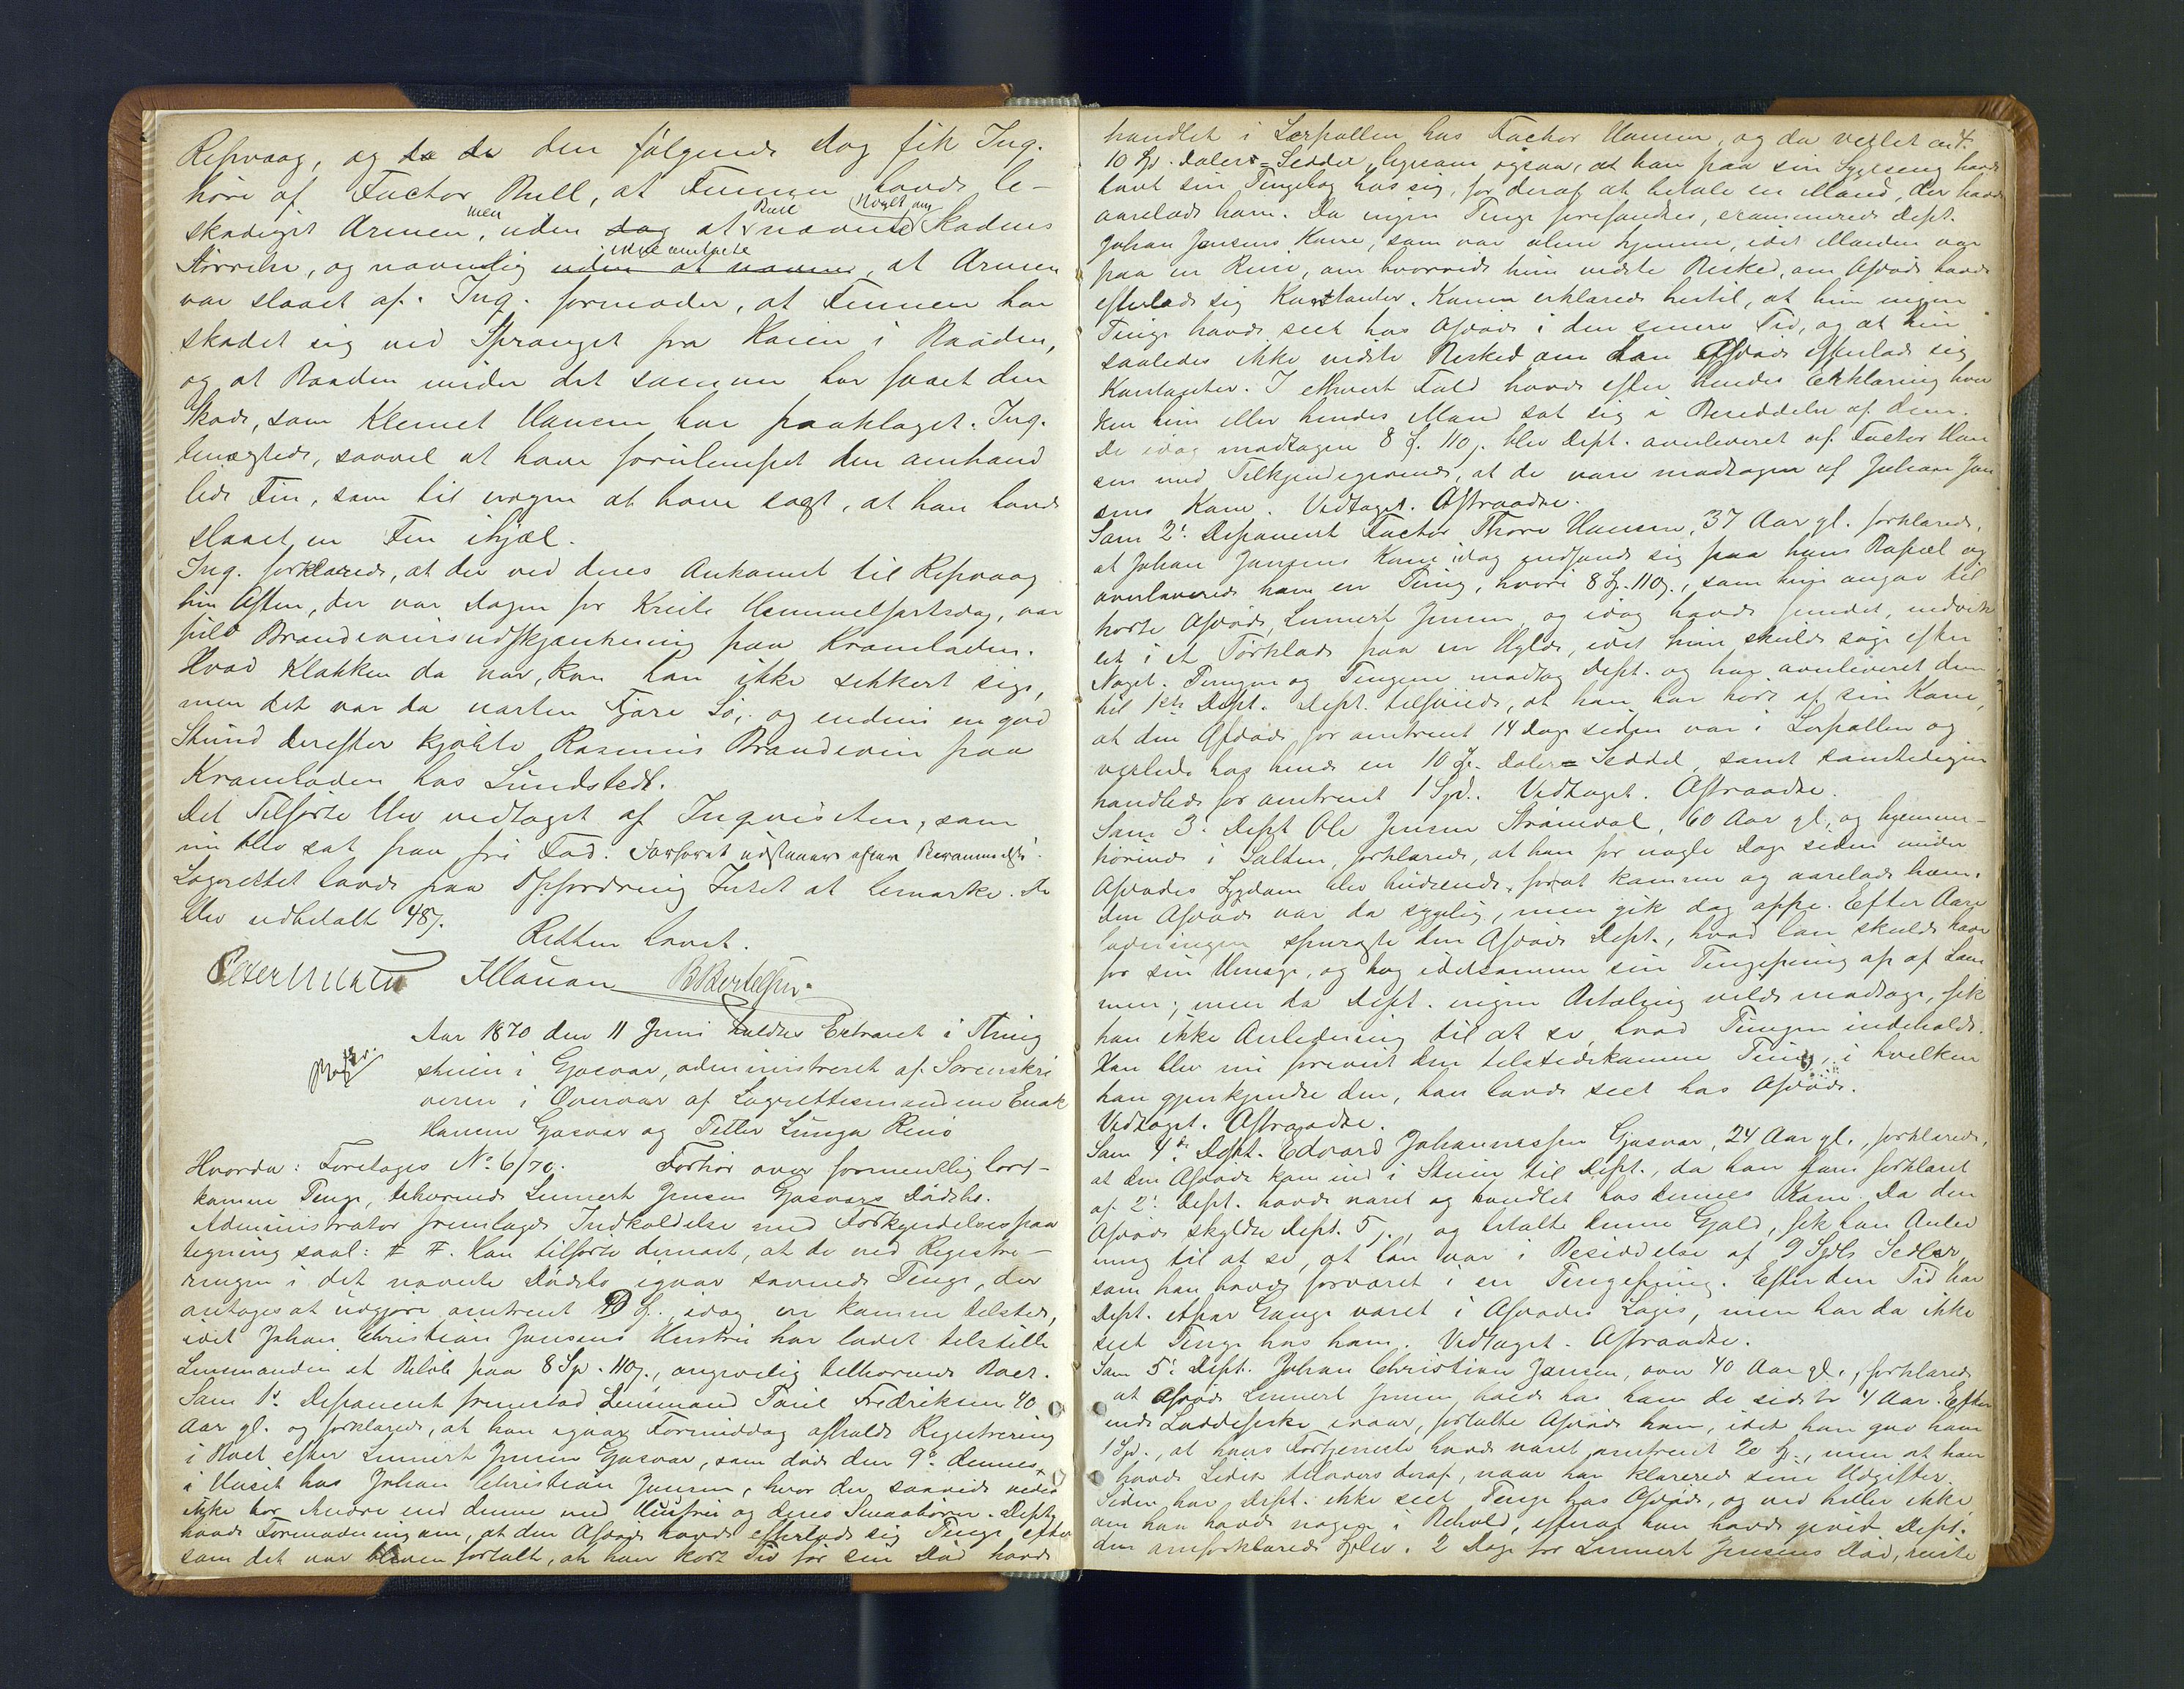 Repvaag, og da de den følgende Dag fik Inq.
høre af Factor Bull, at Finnen havde be-
skadiget Armen, men uden dog at Bull nævnte Noget om Skadens
Størrelse, og navnlig ikke omtalte uden at nævne, at Armen
var slaaet af. Inq. formoder, at Finnen har
skadet sig ved Spranget fra Kaien i Baaden,
og at Baaden under det samme har faaet den
Skade, som Klemet Hansen har paaklaget. Inq.
benægtede, saavel at have forulempet den omhand
lede Fin, som til nogen at have sagt, at han havde
slaaet en Fin ihjæl.
Inq. forklarede, at der ved deres Ankomst til Repvaag
hin Aften, der var Dagen før Kristi Himmelfartsdag, var
fuld Brændevinsudskjænkning paa Kramboden.
Hvad Klokken da var, kan han ikke sikkert sige,
men det var da næsten Fjære Sø, og endnu en god
Stund derefter kjøbte Rasmus Brændevin paa
Kramboden hos Lundstedt.
Det Tilførte blev vedtaget af Inqvisiten, som
nu blev sat paa fri Fod. Forhøret udstaaer efter Berammelse.
Lagrettet havde paa Opfordring Intet at bemærke. De
blev udbetalt 48 s.
Retten hævet.
B Bertelsen
Aar 1870 den 11 Juni holdtes Extraret i Thing
stuen i Gjesvær, administreret af Sorenskri
veren i Overvær af Lagrettesmændene Enok
Hansen Gjesvær og Petter Lunga Renø
Hvorda: Foretages No 6/70. Forhør over formentlig bort-
komne Penge, tilhørende Lennert Jensen Gjesværs Dødsbo.
Administrator fremlagde Indkaldelse med Forkyndelsespaa
tegning saal: # #. Han tilførte dernæst, at de ved Registre-
ringen i det nævnte Dødsbo igaar savnede Penge, der
antages at udgjøre omtrent 10 Sp. idag er komne tilstede,
idet Johan Christian Jansens Hustru har ladet tilstille
Lensmanden et Beløb paa 8 Sp. 110 s., angivelig tilhørende Boet.
Som 1ste Deponent fremstod Lensmand Fredriksen 40
Aar gl. og forklarede, at han igaar Formiddag afholdt Registrering
i Boet efter Lennert Jensen Gjesvær, som døde den 9de dennes
i Huset hos Johan Christian Jansen, hvor der saavidt vides
ikke bor Andre end denne med Hustru og deres Smaabørn. Dept.
havde Formodning om, at den Afdøde havde efterladt sig Penge, efter
som det var bleven fortalt, at han kort Tid før sin Død havde
handlet i hos Factor Hansen, og da vexlet en
10 Sp. Daler=Seddel, ligesom ogsaa, at han paa sin Sygeseng havde
havt sin Pengebog hos sig, for deraf at betale en Mand, der havde
aareladt ham. Da ingen Penge forefandtes, examinerede Dept.
Johan Jansens Kone, som var alene hjemme, idet Manden var
paa en Reise, om hvorvidt hun vidste Besked, om Afdøde havde
efterladt sig Kontanter. Konen erklærede hertil, at hun ingen
Penge havde seet hos Afdøde i den senere Tid, og at hun
saaledes ikke vidste Besked om han Afdøde efterlod sig
Kontanter. I ethvert Fald havde efter hendes Erklæring hver
ken hun eller hendes Mand sat sig i Besiddelse af dem.
De idag modtagne 8 Sp. 110 s. blev Dept. overleveret af Factor Han
sen med Tilkjendegivende, at de vare modtagne af Johan Jan
sens Kone. Vedtaget. Aftraadte.
Som 2: Deponent Factor Thore Hansen, 37 Aar gl. forklarede,
at Johan Jansens Kone idag indfandt sig paa hans Bopæl og
overleverede ham en Pung, hvori 8 Sp. 110 s., som hun angav til
hørte Afdøde, Lennert Jensen, og idag havde fundet, indvik
let i et Tørklæde paa en Hylde, idet hun skulde søge efter
Noget. Pungen og Pengene modtog Dept. og har overleveret dem
til 1ste Dept. Dept. tilføiede, at han har hørt af sin Kone,
at den Afdøde for omtrent 14 Dage siden var i og
vexlede hos hende en 10 Sp. Daler=Seddel, samt samtidigen
handlede for omtrent 1 Spd. Vedtaget. Aftraadte.
Som 3: Dept Ole Jensen Strømdal, 60 Aar gl., og hjemme-
hørende i Salten, forklarede, at han for nogle Dage siden under
Afdødes Sygdom blev budsendt, forat komme og aarelade ham.
Den Afdøde var da sygelig, men gik dog oppe. Efter Aare
ladningen spurgte den Afdøde Dept., hvad han skulde have
for sin Umage, og tog idetsamme sin Pengepung op af Lom
men; men da Dept. ingen Betaling vilde modtage, fik
han ikke Anledning til at se, hvad Pungen indeholdt.
Han blev nu forevist den tilstedekomne Pung, i hvilken
han gjenkjendte den, han havde seet hos Afdøde.
Vedtaget. Aftraadte.
Som 4de Dept. Edvard Johannessen Gjesvær, 24 Aar gl., forklarede,
at den Afdøde kom ind i Stuen til Dept., da han som forklaret
af 2: Dept. havde været og handlet hos dennes Kone. Da den
Afdøde skyldte Dept. 5 , og betalte denne Gjæld, fik han Anled
ning til at se, at han var i Besiddelse af 9 Spds Sedler,
som han havde forvaret i en Pengepung. Efter den Tid har
Dept. et Par Gange været i Afdødes Logis, men har da ikke
seet Penge hos ham. Vedtaget. Aftraadte.
Som 5: Dept. Johan Christian Jansen, over 40 Aar gl., forklarede
at Afdøde Lennert Jensen havde hos ham de sidste 4 Aar. Efter
endt Loddefiske ivaar, fortalte Afdøde ham, idet han gav ham
1 Spd., at hans Fortjeneste havde været omtrent 20 Sp., men at han
havde Lidet tilovers deraf, naar han klarerede sine Udgifter.
Siden har Dept. ikke seet Penge hos Afdøde, og ved heller ikke,
om han havde nogen i Behold, efterat han havde givet Dept.
den omforklarede Spdlr. 2 Dage før Lennert Jensens Død, reiste